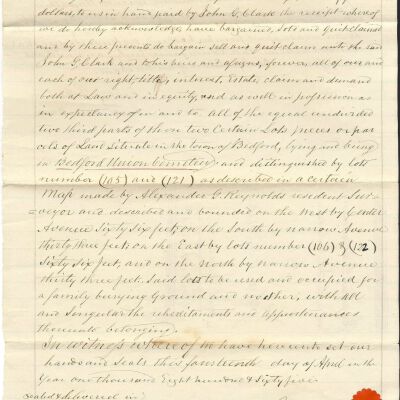 dollars, to us in hand paid by John G. Clark the receipt whereof
we do hereby acknowledge, have bargained, Sold and quit claimed
and by these presents do bargain sell and quit claim unto the said
John G. Clark and to his heirs and assigns, forever, all of our and
each of our right, title, interest, Estate, claim and demand
both at Law and in equity, and as well in possession as
in expectancy of in and to all of the equal undivided
two third parts of those two Certain Lots pieces or par
cels of Land Situate in the town of Bedford, lying and being
in Bedford Union Cemetery and distinguished by lots
number (105 and (121) as described in a certain
Map made by Alexander G. Reynolds resident Sur-
veyor and described and bounded on the West by Center
Avenue Sixty Six feet, on the South by narrow Avenue
thirty three feet, on the East by lots number (106) & (122)
Sixty Six feet, and on the North by narrow Avenue
thirty three feet. Said lots to be used and occupied for
a family burying ground and no other, with all
and Singular the hereditaments and appurtenances
thereunto belonging.
In witness whereof we have hereunto set our
hands and Seals this fourteenth day of April in the
Year one thousand Eight hundred & Sixty five
Sealed & delivered in